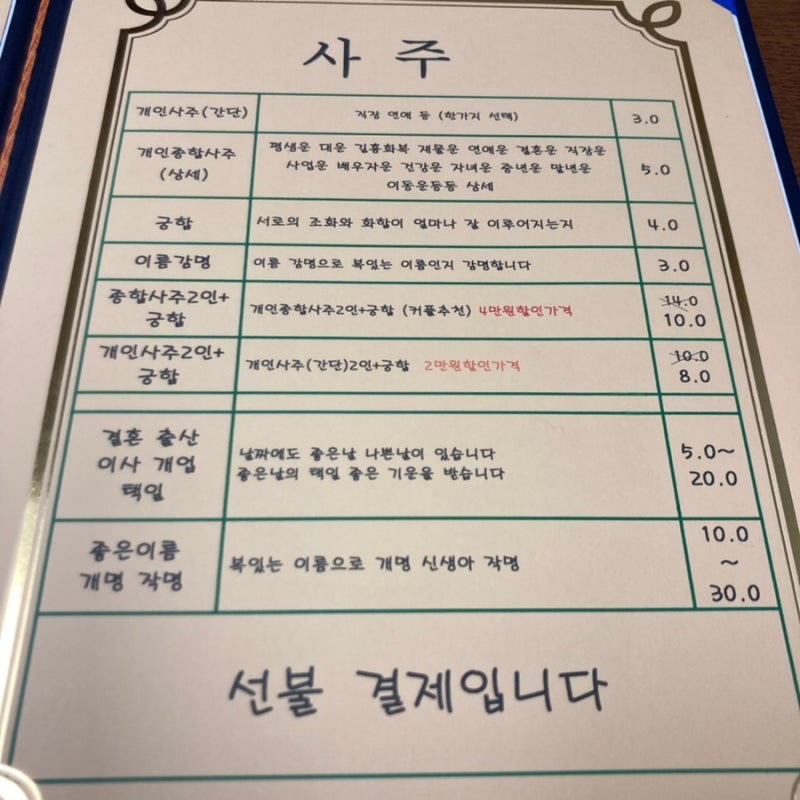 사 주
개인사주(간단)
직장 연애 등 (한가지 선택)
3.0
개인종합사주
(상세)
평생운 대운 길흉화복 재물운 연애운 결혼운 직장운
사업운 배우자운 건강운 자녀운 중년운 말년운
이동운등등 상세
5.0
궁합
서로의 조화와 화합이 얼마나 잘 이루어지는지
4.0
이름감명
이름 감명으로 복있는 이름인지 감명합니다
3.0
종합사주2인+
궁합
개인종합사주2인+궁합 (커플추천) 4만원할인가격
14.0
10.0
개인사주2인+
궁합
개인사주(간단)2인+궁합 2만원할인가격
10.0
8.0
결혼 출산
이사 개업
택일
날짜에도 좋은날 나쁜날이 있습니다
좋은날의 택일 좋은 기운을 받습니다
5.0~
20.0
좋은이름
개명 작명
복있는 이름으로 개명 신생아 작명
10.0
~
30.0
선불 결제입니다